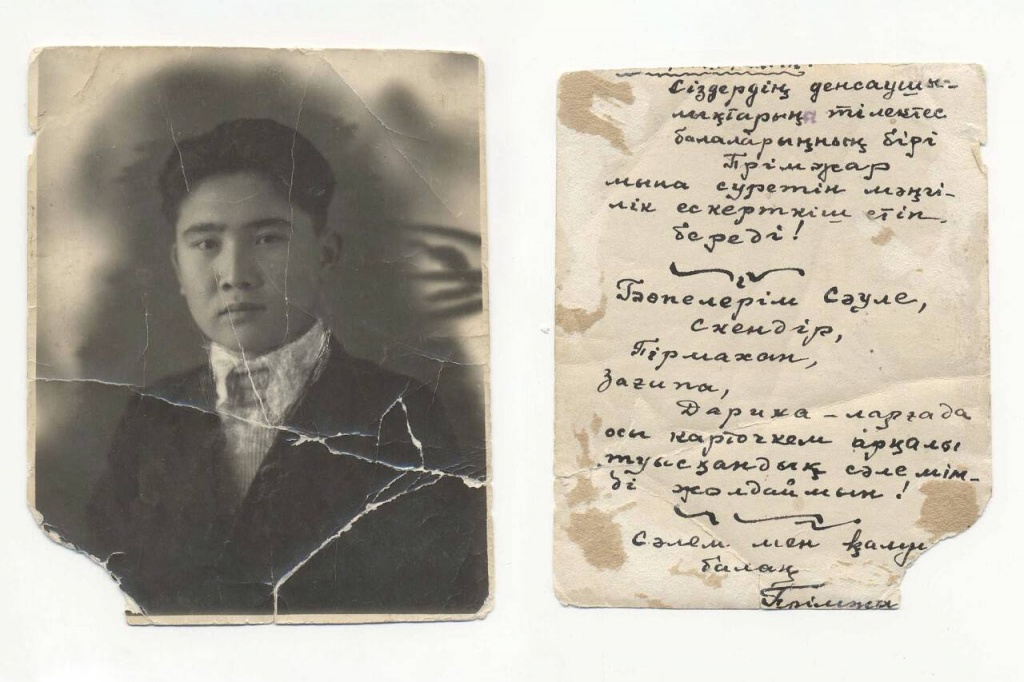 Сіздердің денсаушы-
лықтарыңа тілектес
балаларыңның бірі
Пірімжар
мына суретін мәңгі-
лік ескерткіш етіп
береді!
Бөпелерім Сәуле,
Скендір,
Пірмахан,
Загипа,
Дариха-ларғада
осы карточкем арқалы
туысқандық сәлемім-
ді жолдаймын!
Сәлем мен қалур
балаң